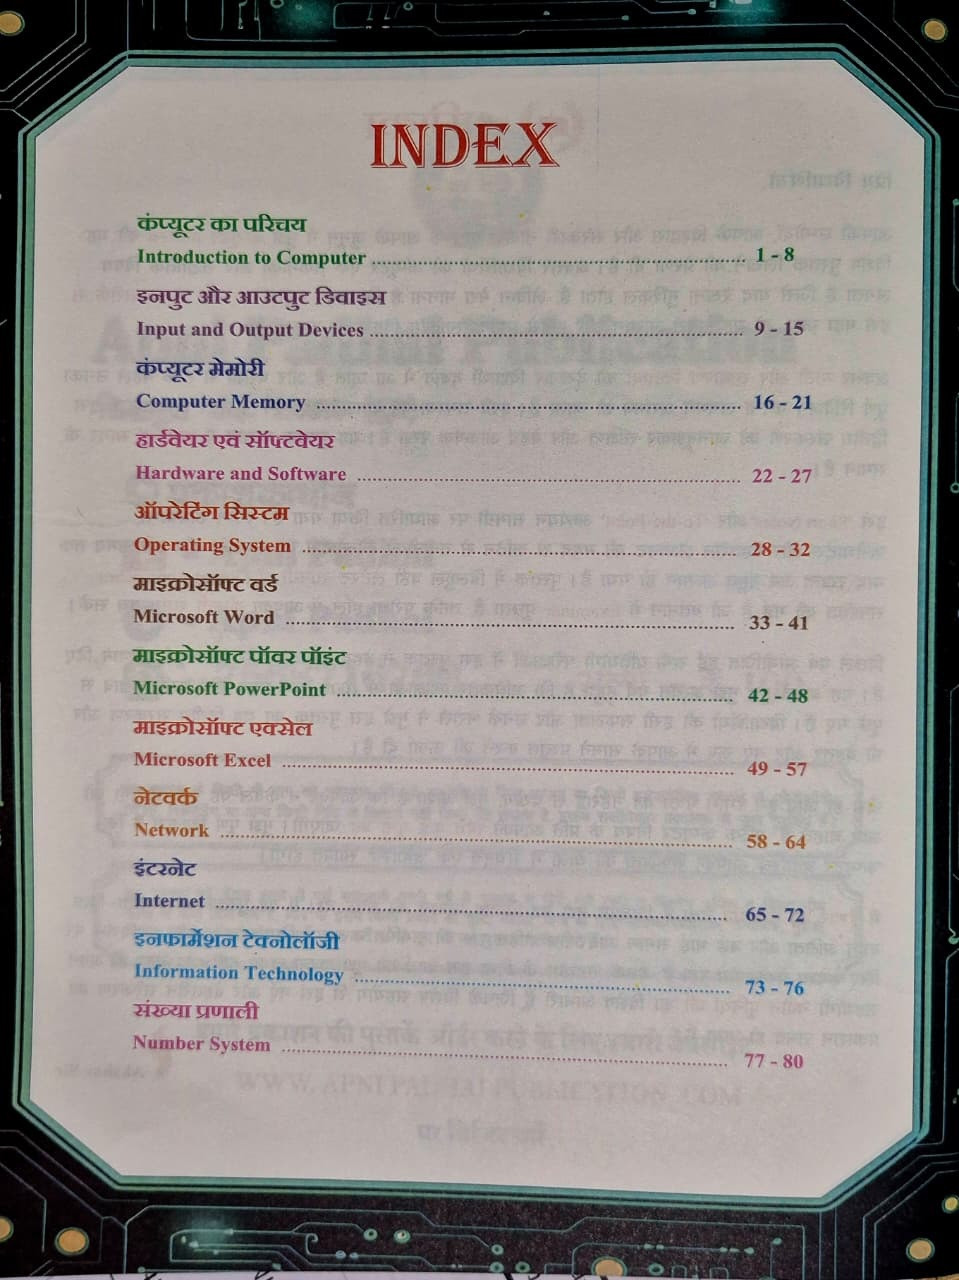 INDEX
कंप्यूटर का परिचय
Introduction to Computer ........ 1 - 8
इनपुट और आउटपुट डिवाइस
Input and Output Devices ........ 9 - 15
कंप्यूटर मेमोरी
Computer Memory ........ 16 - 21
हार्डवेयर एवं सॉफ्टवेयर
Hardware and Software ........ 22 - 27
ऑपरेटिंग सिस्टम
Operating System ........ 28 - 32
माइक्रोसॉफ्ट वर्ड
Microsoft Word ........ 33 - 41
माइक्रोसॉफ्ट पॉवर पॉइंट
Microsoft PowerPoint ........ 42 - 48
माइक्रोसॉफ्ट एक्सेल
Microsoft Excel ........ 49 - 57
नेटवर्क
Network ........ 58 - 64
इंटरनेट
Internet ........ 65 - 72
इनफार्मेशन टेक्नोलॉजी
Information Technology ........ 73 - 76
संख्या प्रणाली
Number System ........ 77 - 80